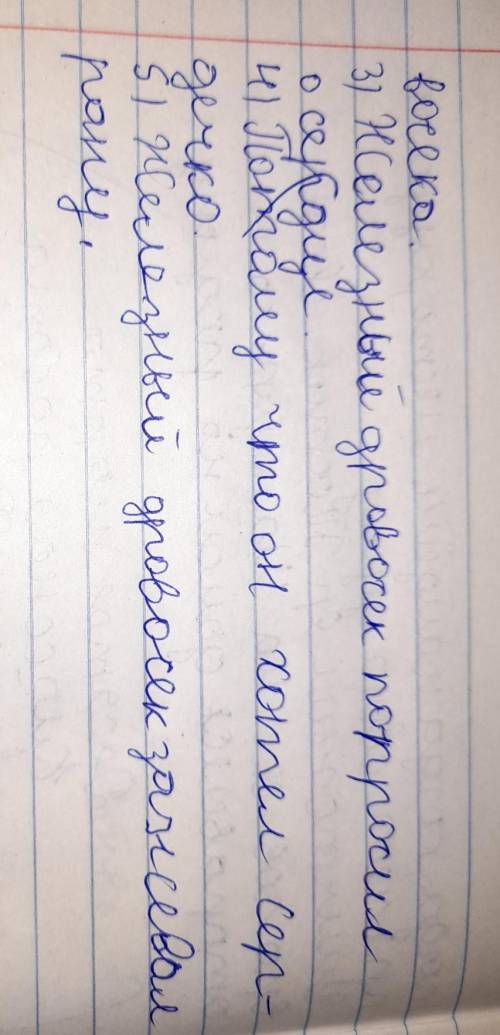 восека.
3) Железный дровосек попросил
о сердце.
4) Потому что он хотел сер-
дечко.
5) Железный дровосек заживал
рану,